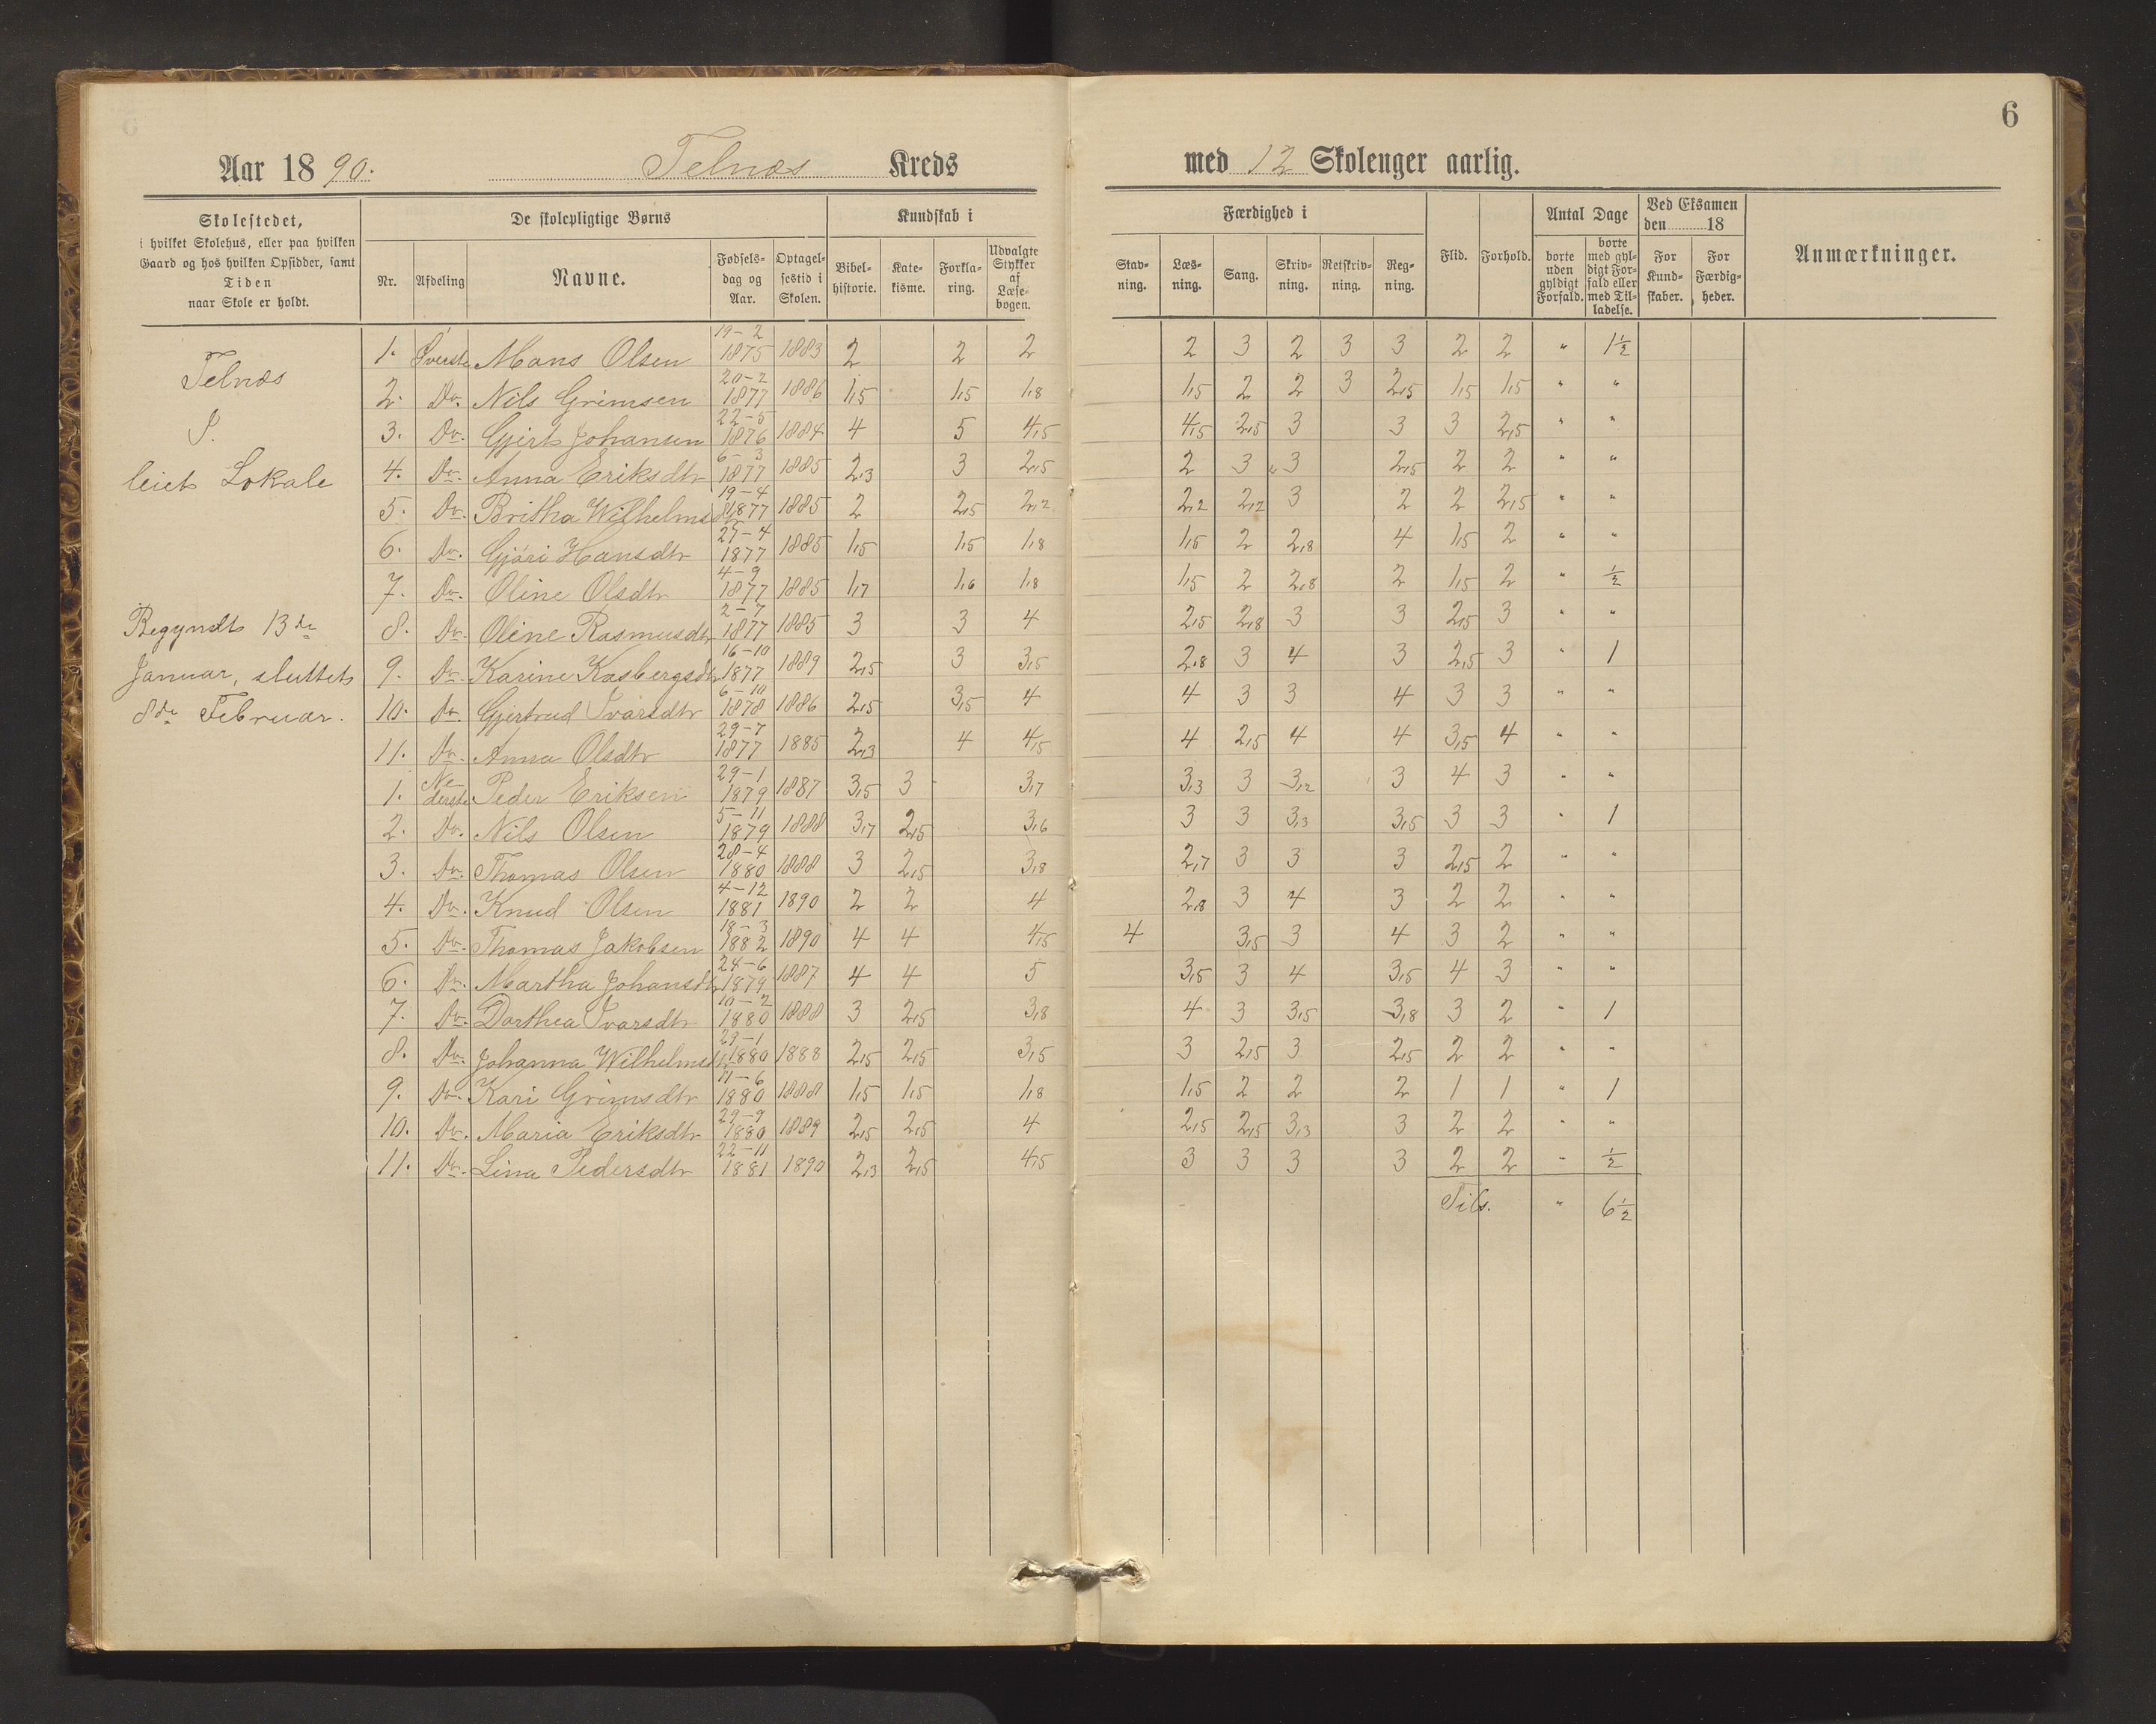 6
Aar 1890. Telnæs Kreds med 12 Skolenger aarlig.
Skolestedet, i hvilket Skolehus, eller paa hvilken Gaard og hos hvilken Opsidder, samt Tiden naar Skole er holdt.
De skolepligtige Børns
Kundskab i
Færdighed i
Flid. Forhold.
Antal Dage
Ved Eksamen den 18
Anmærkninger.
Nr. Afdeling Navne. Fødselsdag og Aar. Optagelsestid i Skolen. Bibelhistorie. Katekisme. Forklaring. Udvalgte Stykker af Læsebogen.
Stavning. Læsning. Sang. Skrivning. Retskrivning. Regning.
borte uden gyldigt Forfald. borte med gyldigt Forfald eller med Tilladelse. For Kundskaber. For Færdigheder.
Telnæs
leiet Lokale
Begyndt 13de
Januar, sluttet
8de Februar.
1. Øverste Mons Olsen 19-2 1875 1883 2 2 2 2 3 2 3 3 2 2 " 1½
2. Do. Nils Grimsen 20-2 1877 1886 1,5 1,5 1,8 1,5 2 2 3 2,5 1,5 1,5 " "
3. Do. Gjert Johansen 22-5 1876 1884 4 5 4,5 4,5 2,5 3 3 3 2,5 " "
4. Do. Anna Eriksdtr 6-3 1877 1885 2,3 3 2,5 2 3 3 2,5 2 2 " "
5. Do. Britha Wilhelmsdtr 19-4 1877 1885 2 2,5 2,2 2,2 2,2 3 2 2 2,5 " "
6. Do. Gjøri Hansdtr 27-4 1877 1885 1,5 1,5 1,8 1,5 2 2,8 4 1,5 2 " "
7. Do. Oline Olsdtr 4-9 1877 1885 1,7 1,6 1,8 1,5 2 2,8 2 1,5 2 " ½
8. Do. Oline Rasmusdtr 2-7 1877 1885 3 3 4 2,5 2,8 3 3 2,5 3 " "
9. Do. Karine Kasbergsdtr 16-10 1877 1889 2,5 3 3,5 2,8 3 4 3 2,5 3 " 1
10. Do. Gjertrud Ivarsdtr 6-10 1878 1886 2,5 3,5 4 4 3 3 4 3 3 " "
11. Do. Anna Olsdtr 29-7 1877 1885 2,3 4 4,5 4 2,5 4 4 3,5 4 " "
1. Nederste Peder Eriksen 29-1 1879 1887 3,5 3 3,7 3,3 3 3,2 3 4 3 " "
2. Do. Nils Olsen 5-11 1879 1888 3,7 2,5 3,6 3 3 3,3 3,5 3 3 " 1
3. Do. Thomas Olsen 28-4 1880 1888 3 2,5 3,8 2,7 3 3 3 2,5 2 " "
4. Do. Knud Olsen 4-12 1881 1890 2 2 4 2,8 3 4 3 2 2 " "
5. Do. Thomas Jakobsen 18-3 1882 1890 4 4 4,5 4 3,5 3 4 3 2 " "
6. Do. Martha Johansdtr 24-6 1879 1887 4 4 5 3,5 3 4 3,5 4 3 " "
7. Do. Dorthea Ivarsdtr 10-2 1880 1888 3 2,5 3,8 4 3 3,5 3,8 3 2 " 1
8. Do. Johanna Wilhelmsdtr 29-1 1880 1888 2,5 2,5 3,5 3 2,5 3 2,5 2 2 " "
9. Do. Kari Grimsdtr 11-6 1880 1888 1,5 1,5 1,8 1,5 2 2 2 1 1 " 1
10. Do. Maria Eriksdtr 29-9 1880 1889 2,5 2,5 4 2,5 2,5 3,3 3 2 2 " "
11. Do. Lina Pedersdtr 22-11 1881 1890 2,3 2,5 4,5 3 3 3 3 2 2 " ½
Tils. " 6½